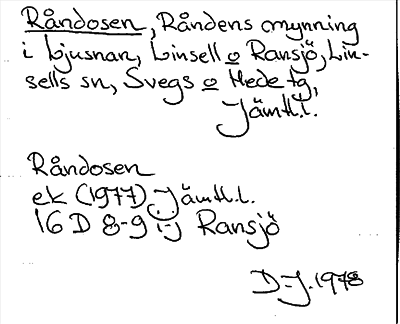 Råndosen, Råndens mynning
i Ljusnan, Linsell o Ransjö, Lin-
sells sn, Svegs o Hede tg,
Jämtl.l.
Råndosen
ek (1977) Jämtl.l.
16 D 8-9 i-j Ransjö
D-J. 1978